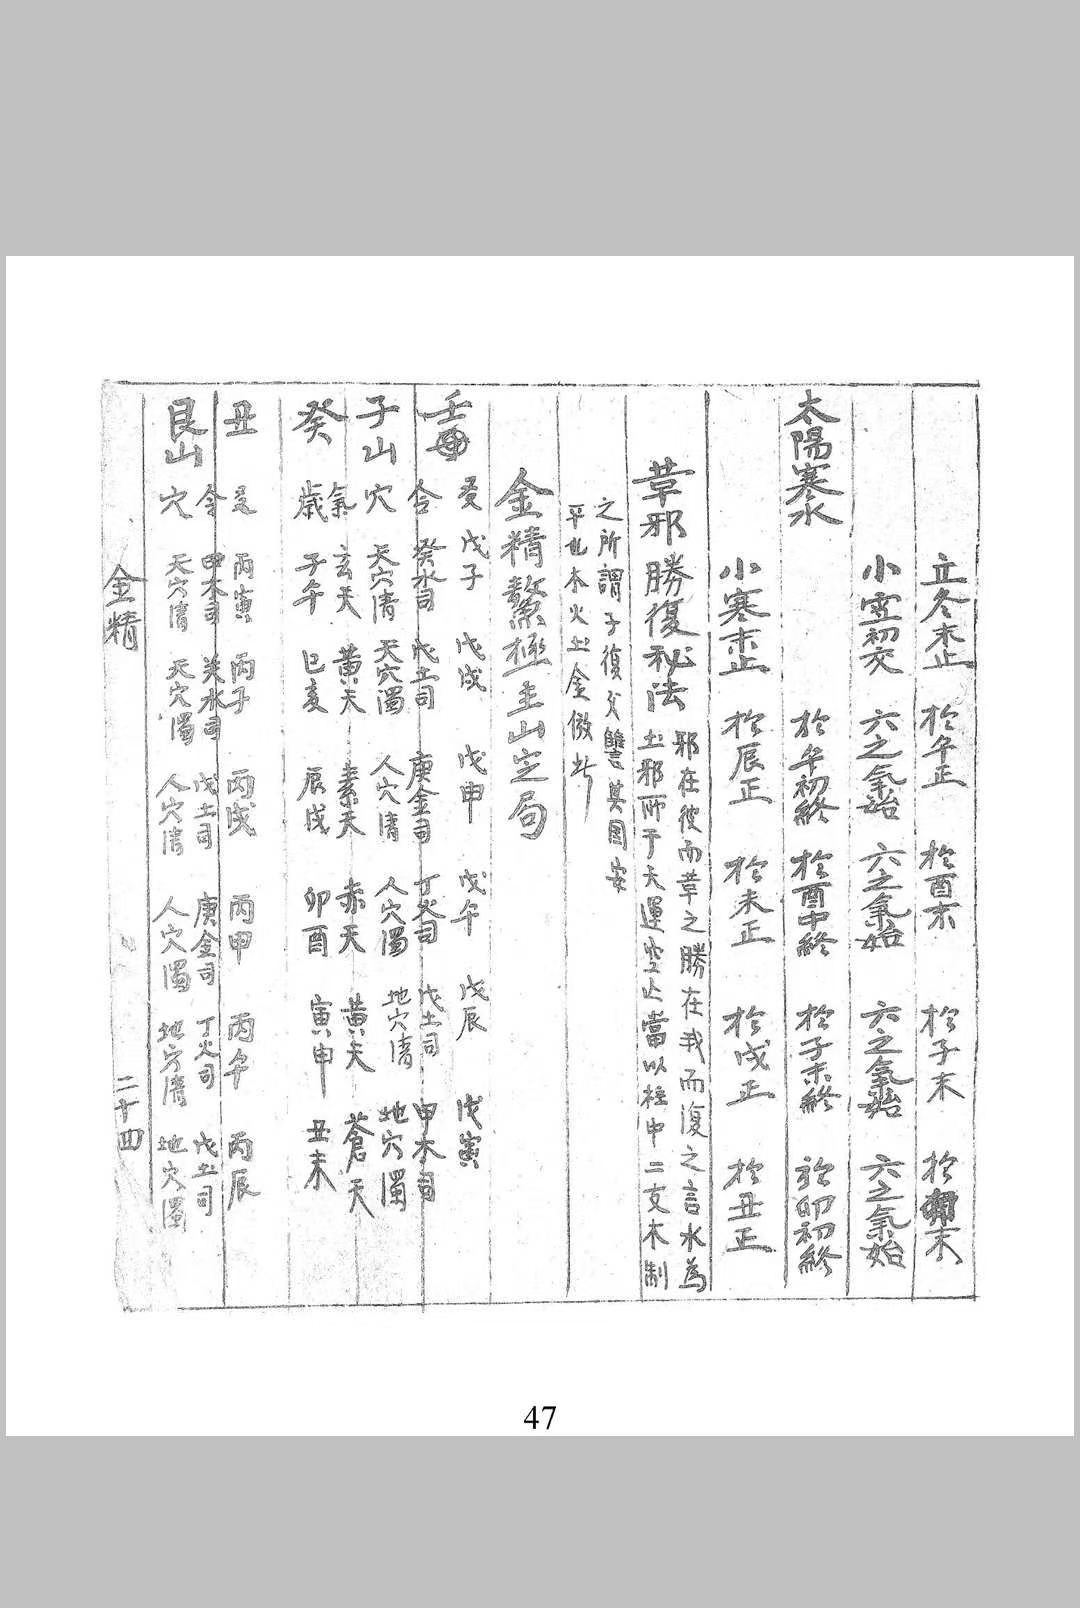 立冬末止 於午正 於酉末 於子末 於卯末
小雪初交 六之氣始 六之氣始 六之氣始 六之氣始
太陽寒水 於午初終 於酉中終 於子末終 於卯初終
小寒末止 於辰正 於未正 於戌正 於丑正
草邪勝復秘法 邪在彼而草之勝在我而復之言水為
土邪所于天運空止當以柱中二支木制
之所謂子復父讐其國安
平也木火土金倣此
金精鰲極主山定局
壬 戊子 戊戌 戊申 戊午 戊辰 戊寅
癸水司 戊土司 庚金司 丁火司 戊土司 甲木司
子山 穴 天穴清 天穴濁 人穴清 人穴濁 地穴清 地穴濁
氣 玄天 黃天 素天 赤天 黃天 蒼天
癸 歲 子午 巳亥 辰戌 卯酉 寅申 丑未
丑 丙寅 丙子 丙戌 丙申 丙午 丙辰
甲木司 癸水司 戊土司 庚金司 丁火司 戊土司
艮山 穴 天穴清 天穴濁 人穴清 人穴濁 地穴清 地穴濁
金精 二十四
47